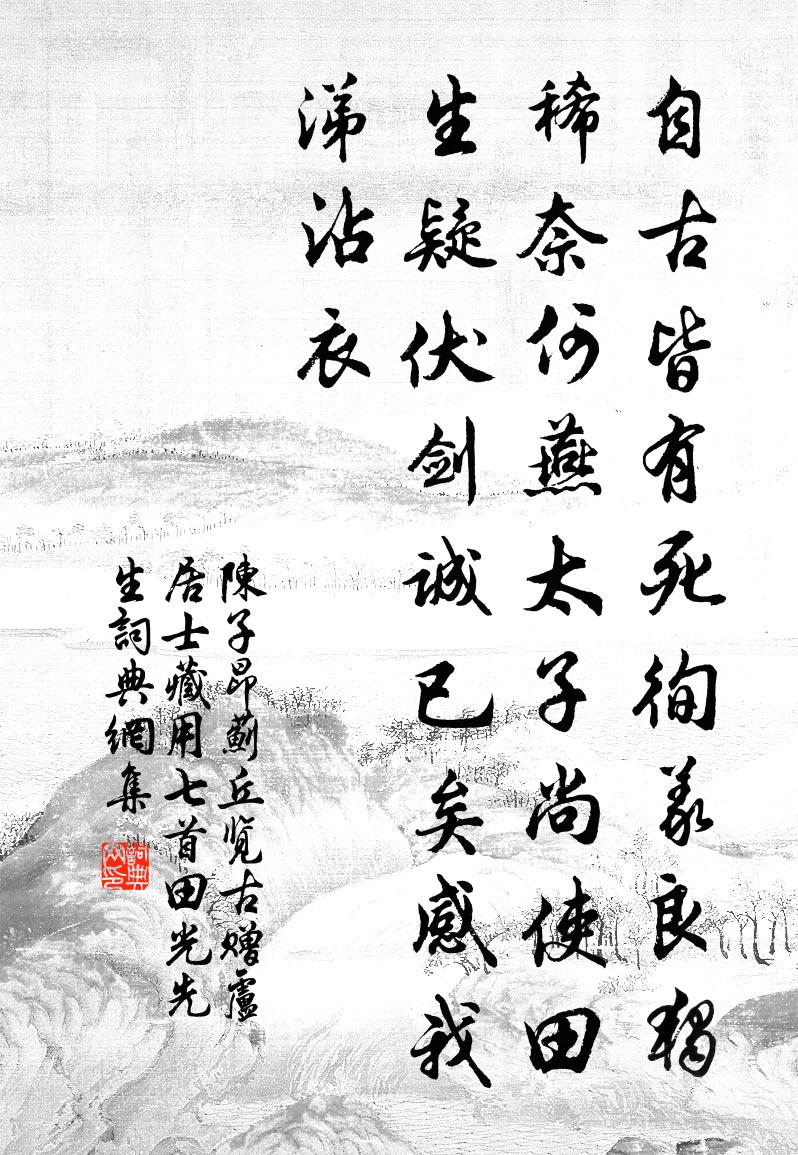 自古皆有死徇義良獨
稀奈何燕太子尚使田
生疑伏劍誠已矣感我
涕沾衣
陳子昂薊丘覽古贈盧
居士藏用七首田光先
生詞典網集
詞典
网印